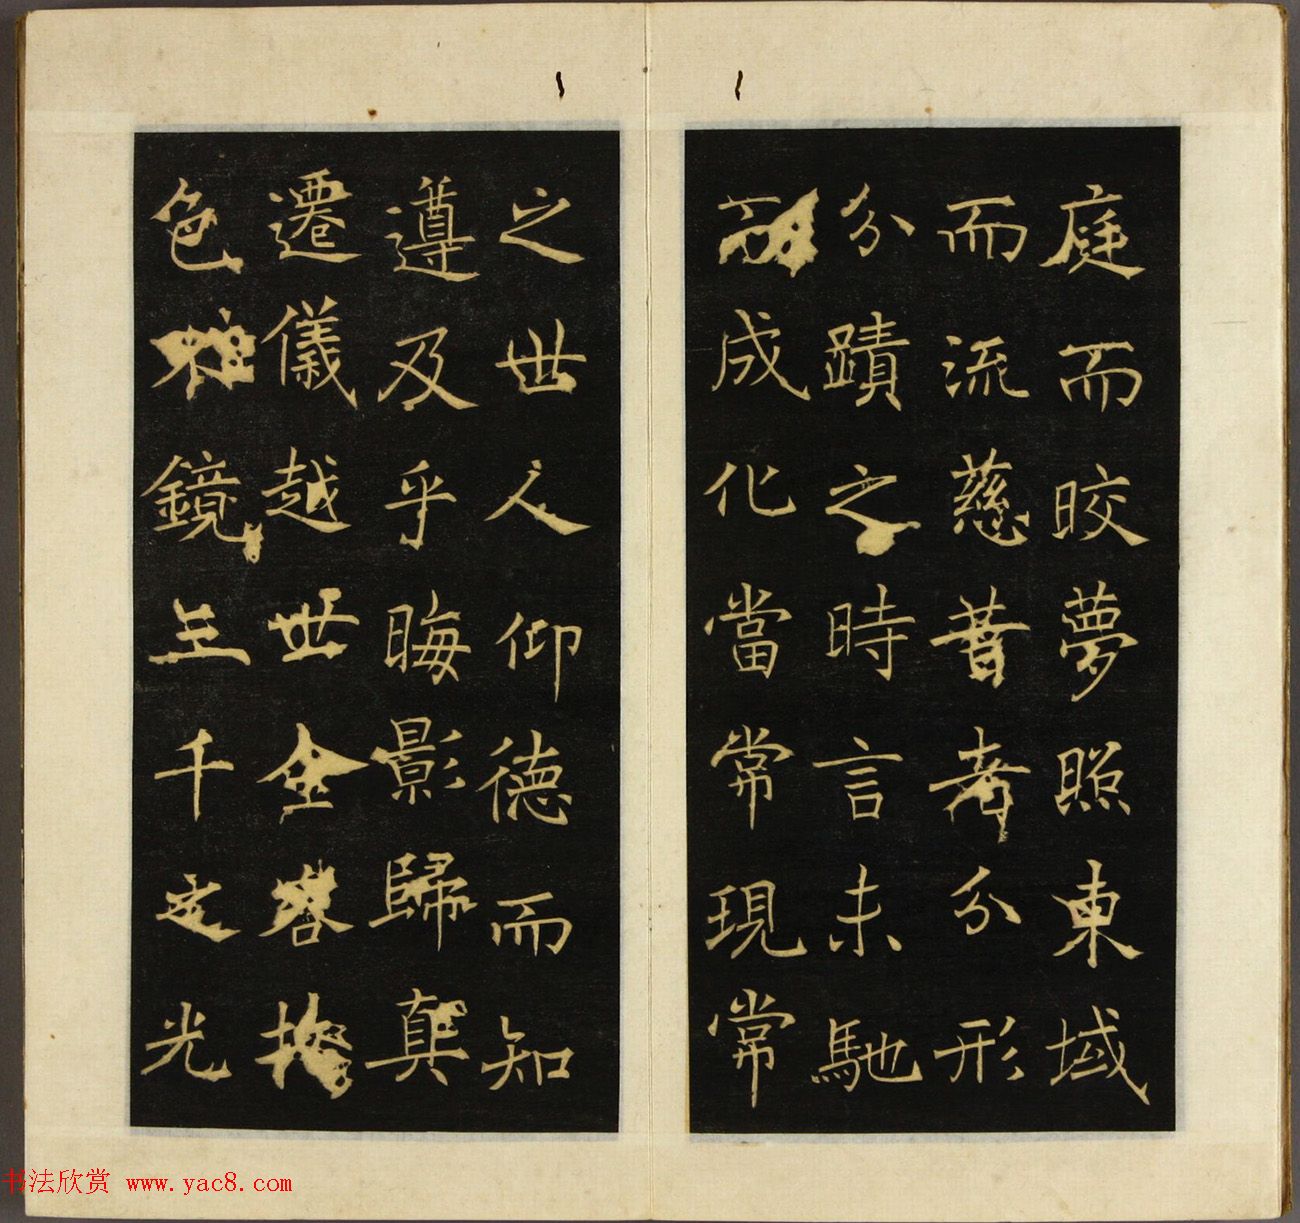 庭而皎夢照東域
而流慈昔者分形
分蹟之時言未馳
而成化當常現常
之世人仰德而知
遵及乎晦影歸真
遷儀越世金容掩
色不鏡三千之光
书法欣赏 www.yac8.com